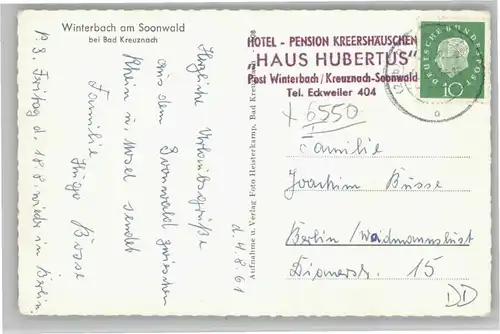 Winterbach am Soonwald
bei Bad Kreuznach
Herzliche Urlaubsgrüße
aus dem Soonwald zwischen
Rhein u. Mosel sendet
Familie Hugo Busse
P.S. Freitag d. 18.8. wieder in Berlin.
d. 4.8.61
Aufnahme u. Verlag Foto Heisterkamp, Bad Kreuznach
HOTEL - PENSION KREERSHÄUSCHEN
„HAUS HUBERTUS"
Post Winterbach/Kreuznach-Soonwald
Tel. Eckweiler 404
DEUTSCHE BUNDESPOST
10
x 6550
Familie
Joachim Busse
Berlin / Waidmannslust
Dianastr. 15
DD